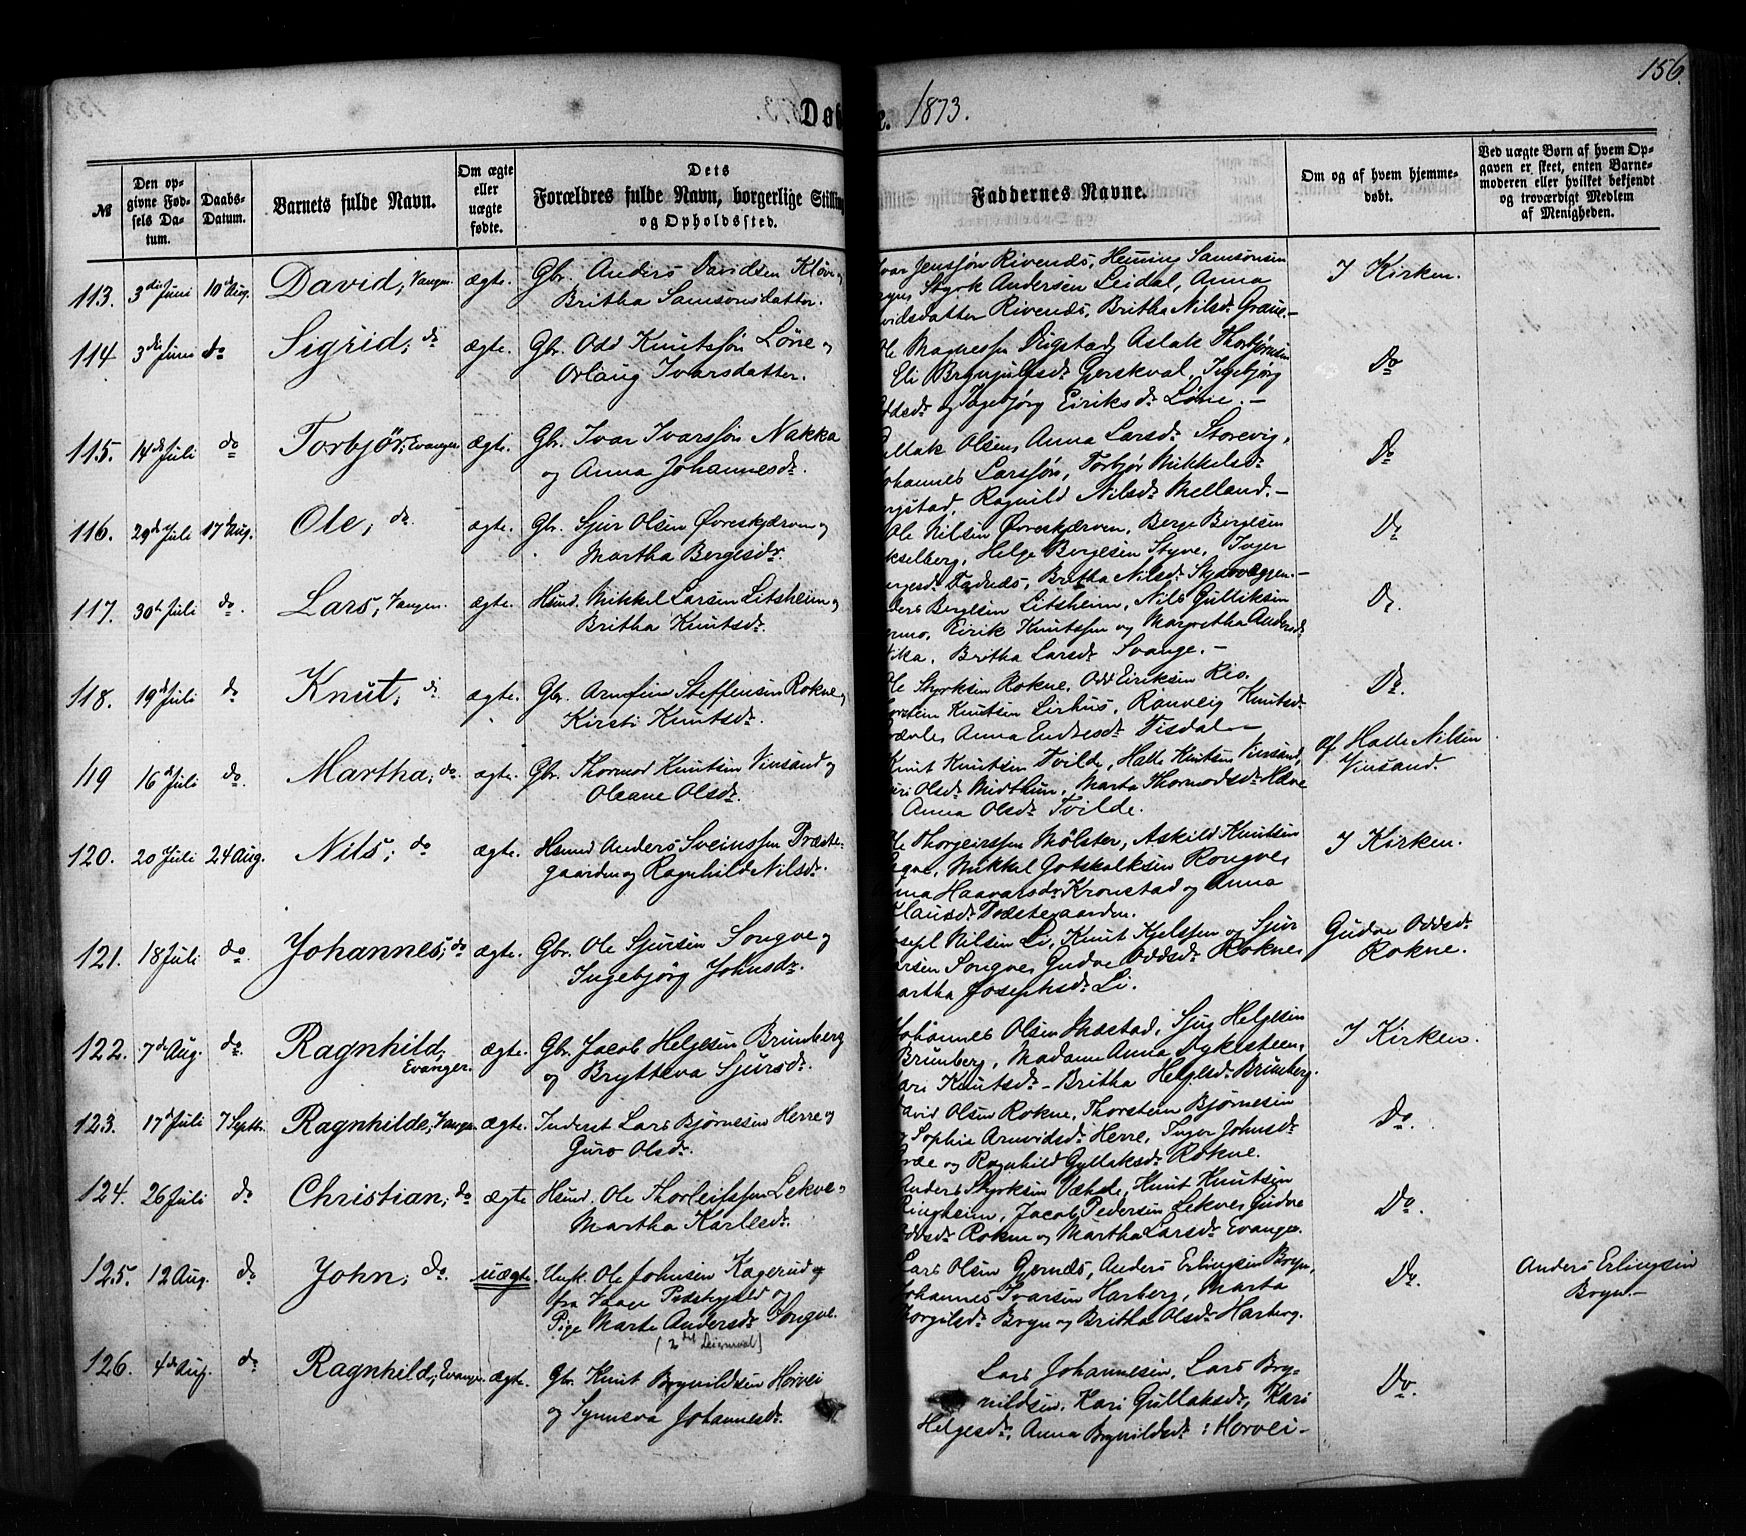 156.
Døbte. 1873.
№
Den opgivne Fødsels Datum.
Daabs-Datum.
Barnets fulde Navn.
Om ægte eller uægte fødte.
Dets Forældres fulde Navn, borgerlige Stilling og Opholdssted.
Faddernes Navne.
Om og af hvem hjemmedøbt.
Ved uægte Børn af hvem Opgaven er skeet, enten Barnemoderen eller hvilket bekjendt og troværdigt Medlem af Menigheden.
113. 3die Juni 10de Aug. David, Vangen. ægte. Gbr. Anders Davidsen Kløve og
Britha Samsonsdatter.
Ivar Jensson Rivenes, Heming Samsonsen
Styrk Andersen Leidal, Anna
vidsdatter Rivenes, Britha Nilsdr Graue.-
I Kirken.
114 3die Juni do Sigrid, do ægte. Gbr. Odd Knutssøn Løne og
Orlaug Ivarsdatter.
Ole Magnessen Rigstad, Aslak Thorbjørnsen
Eli Brynjulfsdr Gjerskval, Ingebjørg
Oddsdr og Ingebjørg Eiriksdr Løne.-
Do
115. 14de Juli do Torbjør, Evanger ægte. Gbr. Ivar Ivarssøn Nakka
og Anna Johannesdr.
Gullak Olsen, Anna Larsdr Storevig,
Johannes Larssøn, Torbjør Mikkelsdr
Ragnild Nilsdr Melland.-
Do
116. 29de Juli 17de Aug. Ole, do ægte. Gbr. Sjur Olsen Øvreskjærven og
Martha Bergesdr.
Ole Nilsen Øvreskjærven, Berge Bergesen
Helge Bergesen Styve, Inger
Bergesdr Fadnes, Britha Nilsdr Skjerveggen.-
Do
117. 30te Juli do. Lars, Vangen. ægte. Husmd. Mikkel Larsen Litsheim og
Britha Knutsdr.
Anders Bergesen Litsheim, Nils Gulliksen
Eirik Knutssen og Margretha Andersdr
Britha Larsdr Svange.-
Do.
118. 19de Juli do Knut, do ægte. Gbr. Arnfin Steffensen Rokne og
Kirsti Knutsdr.
Ole Styrksen Rokne, Odd Eiriksen Rio.
Thorstein Knutsen Lirhus, Ranveig Knutsdr
Anna Endresdr Tisdal
Do.
119 16de Juli do. Martha, do. ægte. Gbr. Thormod Knutsen Vinsand og
Oleane Olsdr.
Knut Knutsen Tvilde, Halle Knutsen Vinsand,
Kari Olsdr Midthun, Marta Thormodsdr Hæve
Anna Olsdr Tvilde.
Af Halle Nilsen
Vinsand.
120. 20 Juli 24 Aug. Nils, do ægte. Husmd Anders Sveinssen Præste-
gaarden og Ragnhild Nilsdr.
Ole Thorgeirssen Mølster, Askild Knutsen
Mikkel Gotskalksen Rongve,
Anna Haavarsdr Kronstad og Anna
Clausdr Præstegaarden.
I Kirken.
121. 18 Juli do. Johannes, do ægte. Gbr. Ole Sjursen Songve og
Ingebjørg Johnsdr.
Joseph Nilsen Li, Knut Kjelssen og Sjur
Songve, Gudve Oddsdr Rokne,
Martha Josephsdr Li.
Gudve Oddsdr
Rokne.
122. 7de Aug. do. Ragnhild, Evanger. ægte. Gbr. Jacob Helgesen Brunberg
og Brytteva Sjursdr.
Johannes Olsen Mæstad, Sjug Helgesen
Brunberg, Madame Anna Dyklsteen,
Kari Knutsdr – Britha Helgesdr Brunberg.
I Kirken.
123. 17de Juli 7 Septbr. Ragnhilde, Vangen ægte. Inderst Lars Bjørnesen Herre og
Guro Olsdr.
David Olsen Rokne, Thorstein Bjørnesen
og Sophie Arnvidsdr Herre, Inger Johnsdr
og Ragnhild Gullaksdr Rokne.
Do.
124. 26 Juli do Christian, do ægte Husmd. Ole Thorleifssen Lekve
Martha Karlesdr.
Anders Styrksen Væhle, Knut Knutsen
Ringheim, Jacob Pedersen Lekve, Gudve
Oddsdr Rokne og Martha Larsdr Evanger.
Do.
125. 12 Aug. do John, do. uægte Unk. Ole Johnsen Kagerud
fra Vaage Præstegjeld og
Pige Marte Andersdr Songve.
(2det Leiermaal)
Lars Olsen Gjernes, Anders Erlingsen Bryn,
Johannes Ivarsen Harberg, Marta
Torgilsdr Bryn og Britha Olsdr Harberg.
Do.
Anders Erlingsen
Bryn
126. 4de Aug. do Ragnhild, Evanger ægte. Gbr. Knut Brynildsen Horvei
og Synneva Johannesdr.
Lars Johannesen, Lars Bry-
nildsen, Kari Gullaksdr, Kari
Helgesdr, Anna Brynildsdr: Horvei-
Do.